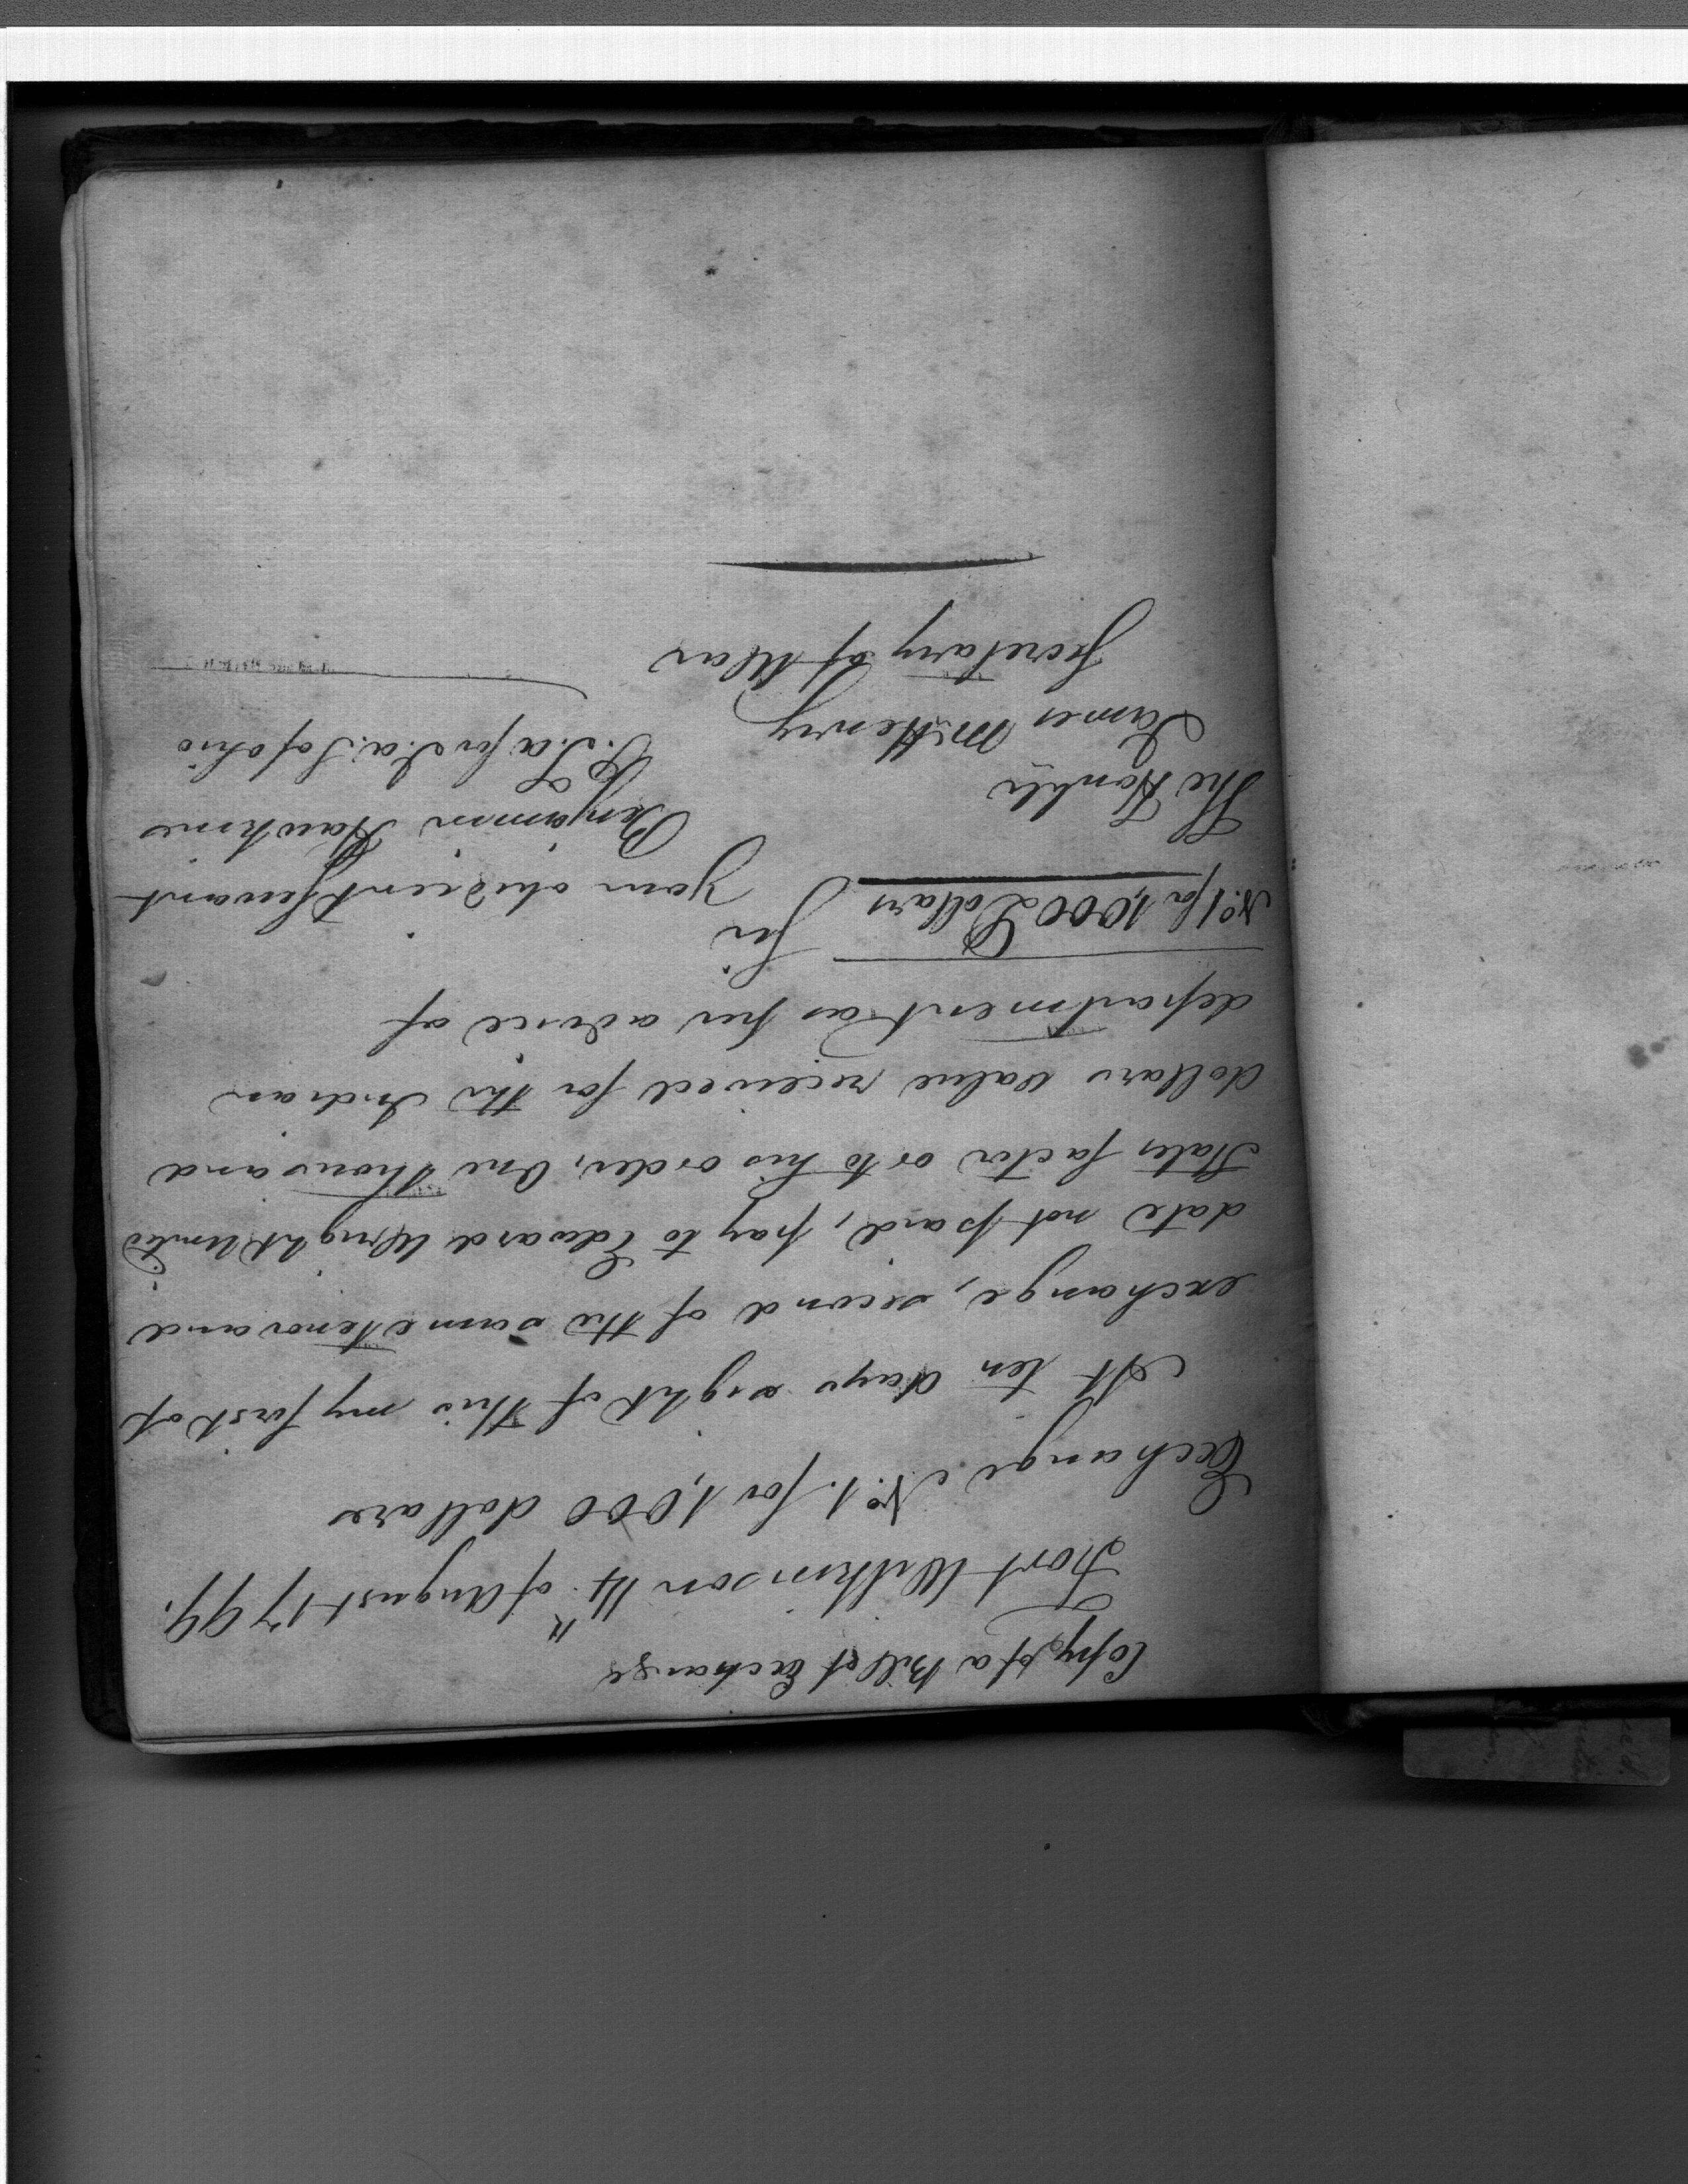 Copy of a Bill of Exchange
Fort Wilkinson 14th of August 1799.
Exchange No. 1. for 1,000 dollars
At ten days sight of this my first of
exchange, second of the same tenor and
date not paid, pay to Edward Wright United
States factor or to his order, One thousand
dollars value received for the Indian
department as per advice of
No. 1 for 1,000 Dollars
Sir
Your obedient Servant
The Honble
Benjamin Hawkins
James McHenry
P.T.A for I.A. S of Ohio
Secretary of War